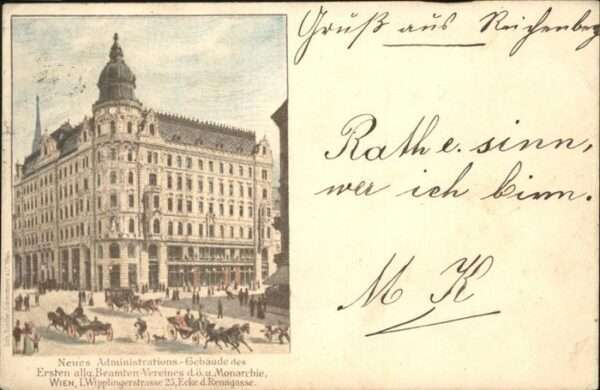 Gruß aus Reichenberg
Rath e. sinn,
wer ich binn.
M K
Neues Administrations-Gebäude des
Ersten allg. Beamten-Vereines d. ö. u. Monarchie,
WIEN, I. Wipplingerstrasse 25, Ecke d. Renngasse.